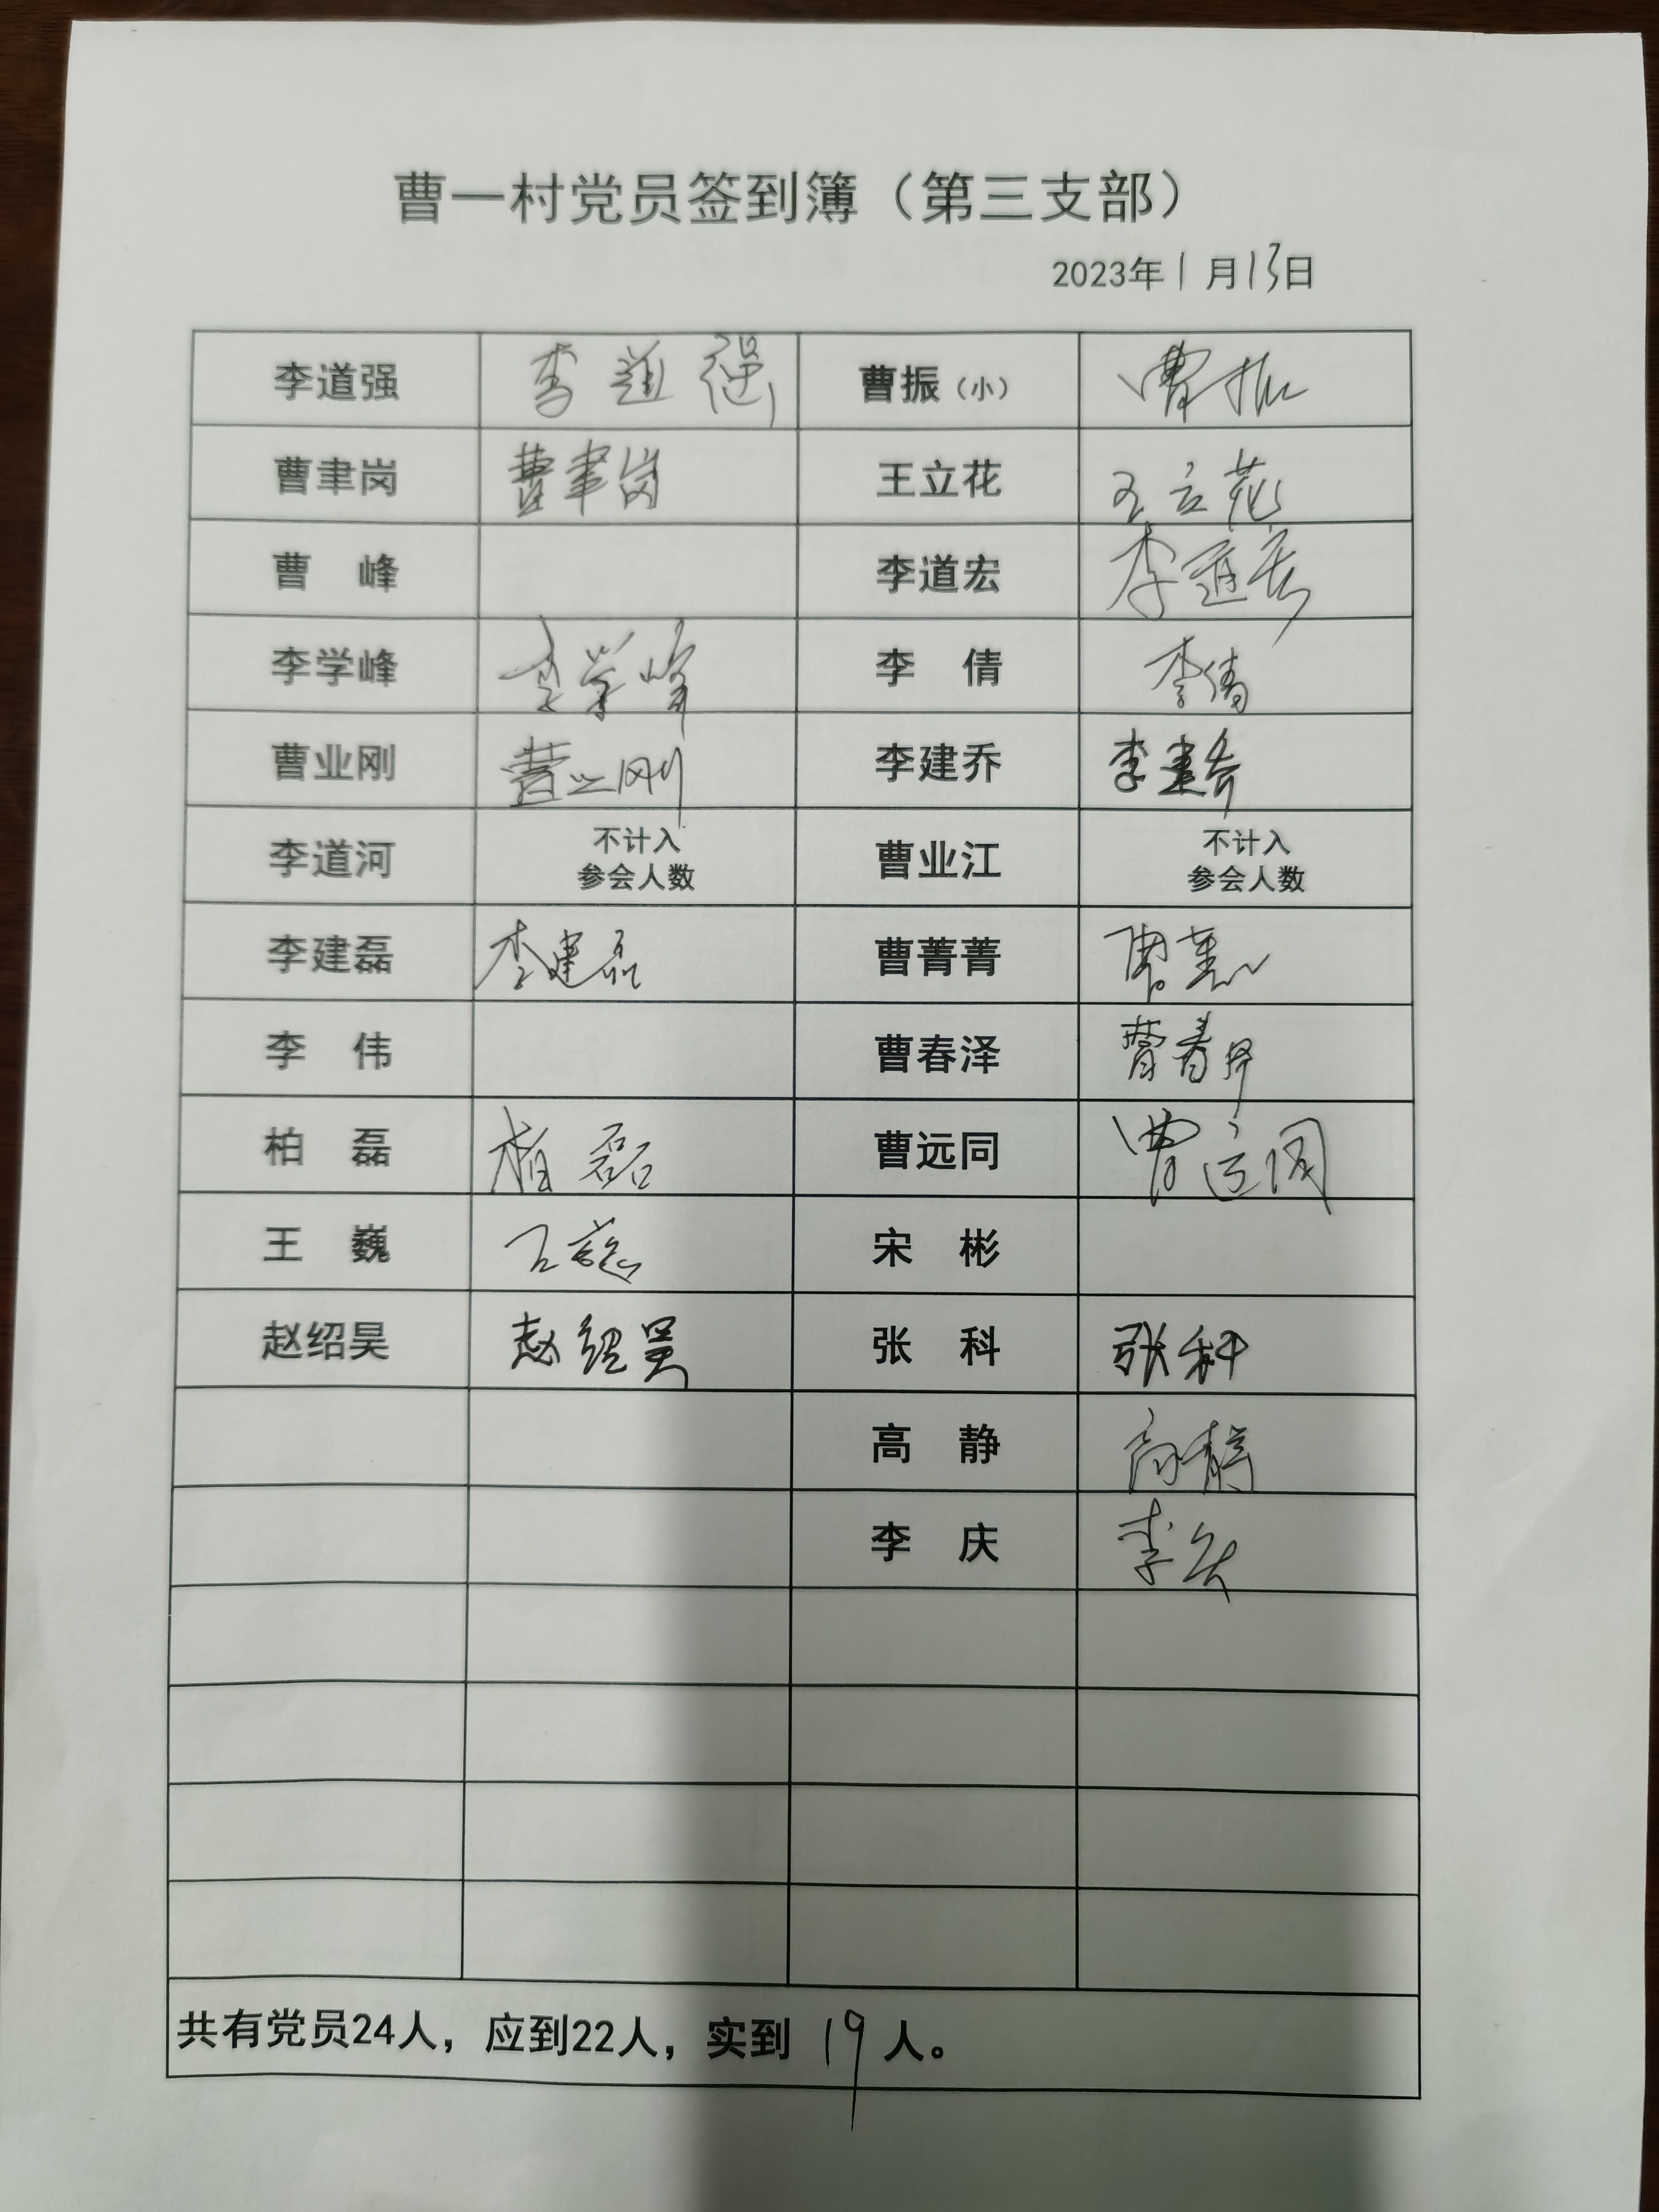 曹一村党员签到簿（第三支部）
2023年1月13日
李道强 李道强 曹振（小） 曹振
曹聿岗 曹聿岗 王立花 王立花
曹 峰 李道宏 李道宏
李学峰 李学峰 李 倩 李倩
曹业刚 曹业刚 李建乔 李建乔
李道河 不计入 曹业江 不计入
参会人数 参会人数
李建磊 李建磊 曹菁菁 曹菁菁
李 伟 曹春泽 曹春泽
柏 磊 柏磊 曹远同 曹远同
王 巍 王巍 宋 彬
赵绍昊 赵绍昊 张 科 张科
高 静 高静
李 庆 李庆
共有党员24人，应到22人，实到 19 人。